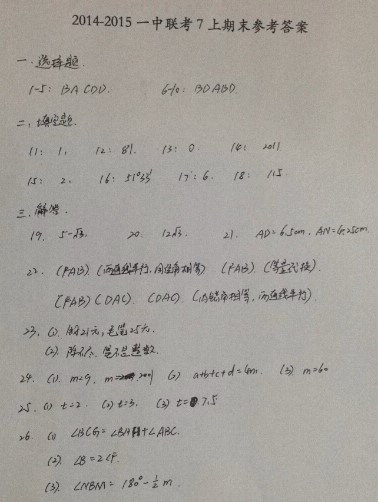 2014-2015 一中联考 7 上期末参考答案
一、选择题.
1-5: BACDD. 6-10: BDABD.
二、填空题.
11: 1. 12: 81. 13: 0. 14: 2011
15: 2. 16: 51°33′ 17: 6. 18: 115.
三、解答.
19. 5-√3. 20. 12√3. 21. AD=6.5cm, AN=6.25cm.
22. (FAB) (两直线平行, 同位角相等) (FAB) (等量代换).
(FAB) (DAC). (DAC). (内错角相等, 两直线平行).
23. (1). 21元, 毛笔25元.
(2)
24. (1). m=9, (2) a+b+c+d=4m. (3) m=60
25. (1) t=2. (2) t=3. (3) t=7.5
26 (1) ∠BCG= +∠ABC.
(2). ∠B=2∠P.
(3). ∠NBM= 180°-½m.